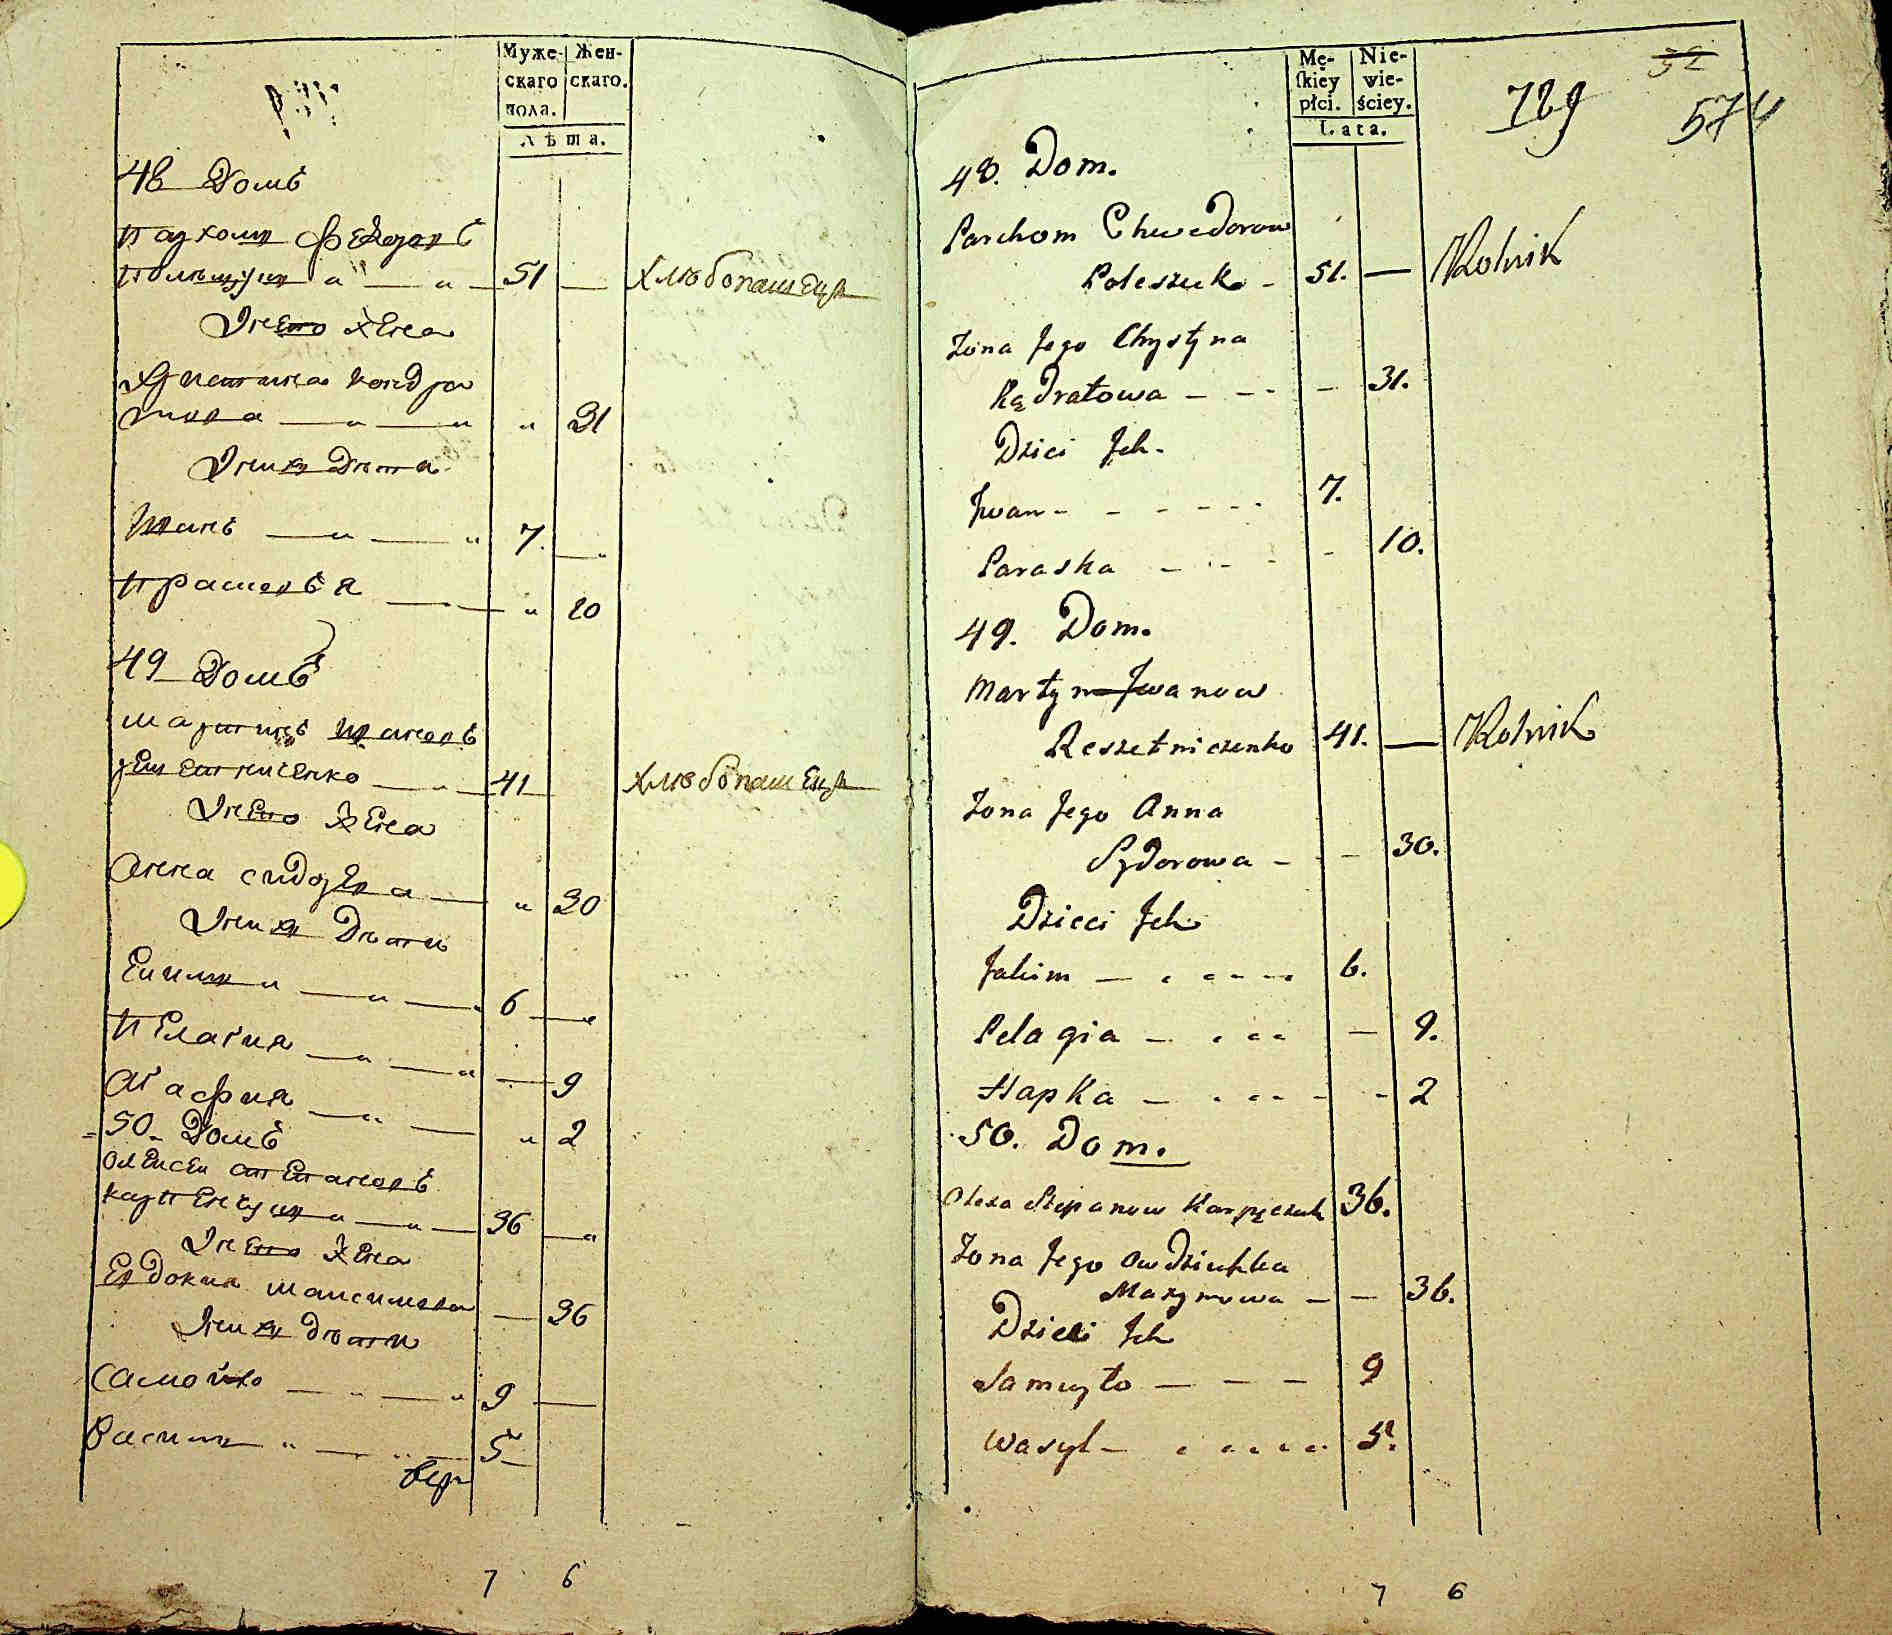 Муже-
скаго
пола.
Жен-
скаго.
Лѣта.
48 Домъ
Пархомъ Федоровъ
Полѣщукъ 51 Хлѣбопашецъ
Его жена
Христина Кондра
това 31
Ихъ дети
Иванъ 7.
Прасковья 10
49 Домъ
Мартинъ Ивановъ
Решетниченко 41 Хлѣбопашецъ
Его жена
Анна Сидорова 30
Ихъ дети
Екимъ 6
Пелагия 9
Агафия 2
50 Домъ
Олексей Степановъ
Карпенчукъ 36
Его жена
Евдокия Максимова 36
Ихъ дети
Самойло 9
Василь 5
7 6
Mę-
skiey
płci.
Nie-
wie-
ściey.
Lata.
729
574
48. Dom.
Parchom Chwedorow
Poleszuk 51. — Rolnik
Żona Jego Chrystyna
Kądratowa 31.
Dzieci Ich.
Iwan 7.
Paraska 10.
49. Dom.
Martyn Iwanow
Reszetniczenko 41. — Rolnik
Żona Jego Anna
Sydorowa 30.
Dzieci Ich
Jakim 6.
Pelagia 9.
Hapka 2
50. Dom.
Olexa Stepanow Karpęczuk 36.
Żona Jego Owdziuhka
Maxymowa 36.
Dzieci Ich
Samuyło 9
Wasyl 5.
7 6